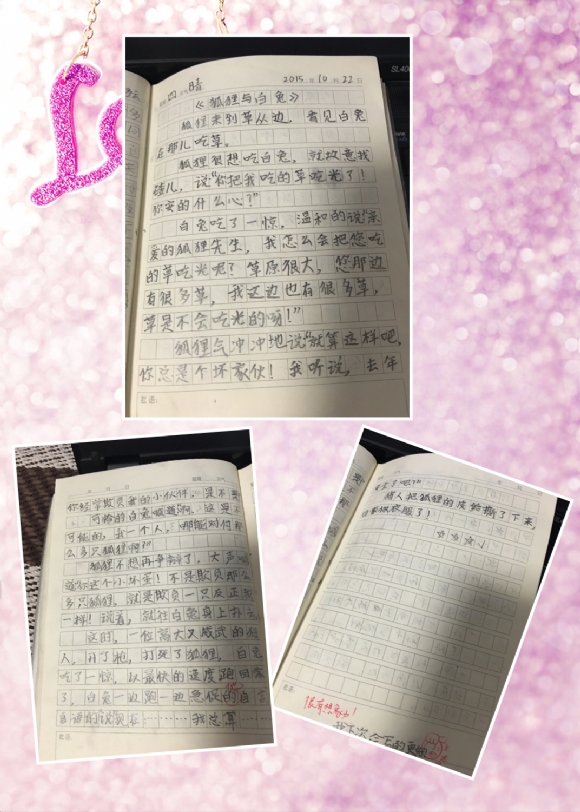 星期四 晴 2015年10月22日
《狐狸与白兔》
狐狸来到草丛边，看见白兔
在那儿吃草。
狐狸很想吃白兔，就故意找
碴儿，说“你把我吃的草吃光了！
你安的什么心？”
白兔吃了一惊，温和的说“亲
爱的狐狸先生，我怎么会把您吃
的草吃光呢？草原很大，您那边
有很多草，我这边也有很多草，
草是不会吃光的呀！”
狐狸气冲冲地说“就算这样吧，
你总是个坏家伙！我听说，去年
批语：
你经常欺负我的小伙伴，是不是
可怜的白兔喊着啊，这是不
可能的，我一个人，哪能对付那
么多只狐狸啊？”
狐狸不想再争辩了，大声
道“你这个小坏蛋！不是欺负那么
多只狐狸，就是欺负一只反正都
一样！说着，就往白兔身上扑去
这时，一位高大又威武的猎
人，开了枪，打死了狐狸，白兔
吃了一惊，以最快的速度跑回家
了，白兔一边跑一边急促的自言
自语的说
我总算
批语：
安全了吧！”
猎人把狐狸的皮给撕了下来，
回家做衣服了！
哈哈哈
批语：
很有想象力！
SL40